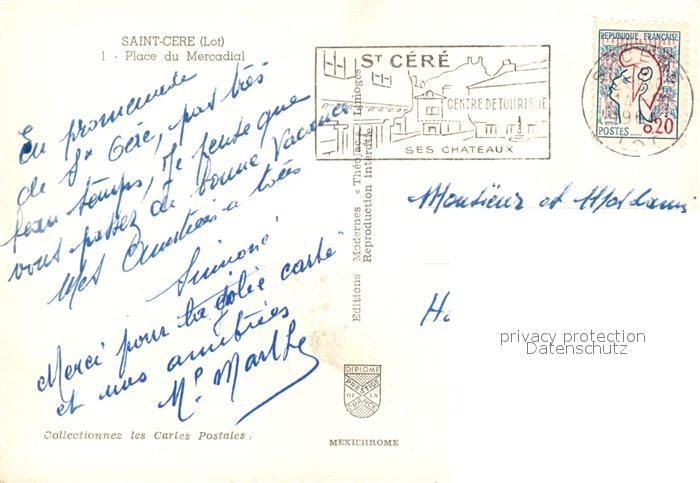 SAINT-CERE (Lot)
1 - Place du Mercadial
En promenade
de St Céré, pas très
beau temps, Je pense que
vous passez de bonne Vacances
Mes Amitiés a toões
Simone
Merci pour ta jolie carte
et nos amitiées
Me Marthe
Collectionnez les Cartes Postales
Editions Modernes « Théojac » Limoges
Reproduction Interdite
DIPLOME
PRESTIGE
DE LA
FRANCE
MEXICHROME
ST CÉRÉ
CENTRE DE TOURISME
SES CHATEAUX
REPUBLIQUE FRANÇAISE
POSTES
0,20
LOT
Monsieur et Madame
privacy protection
Datenschutz